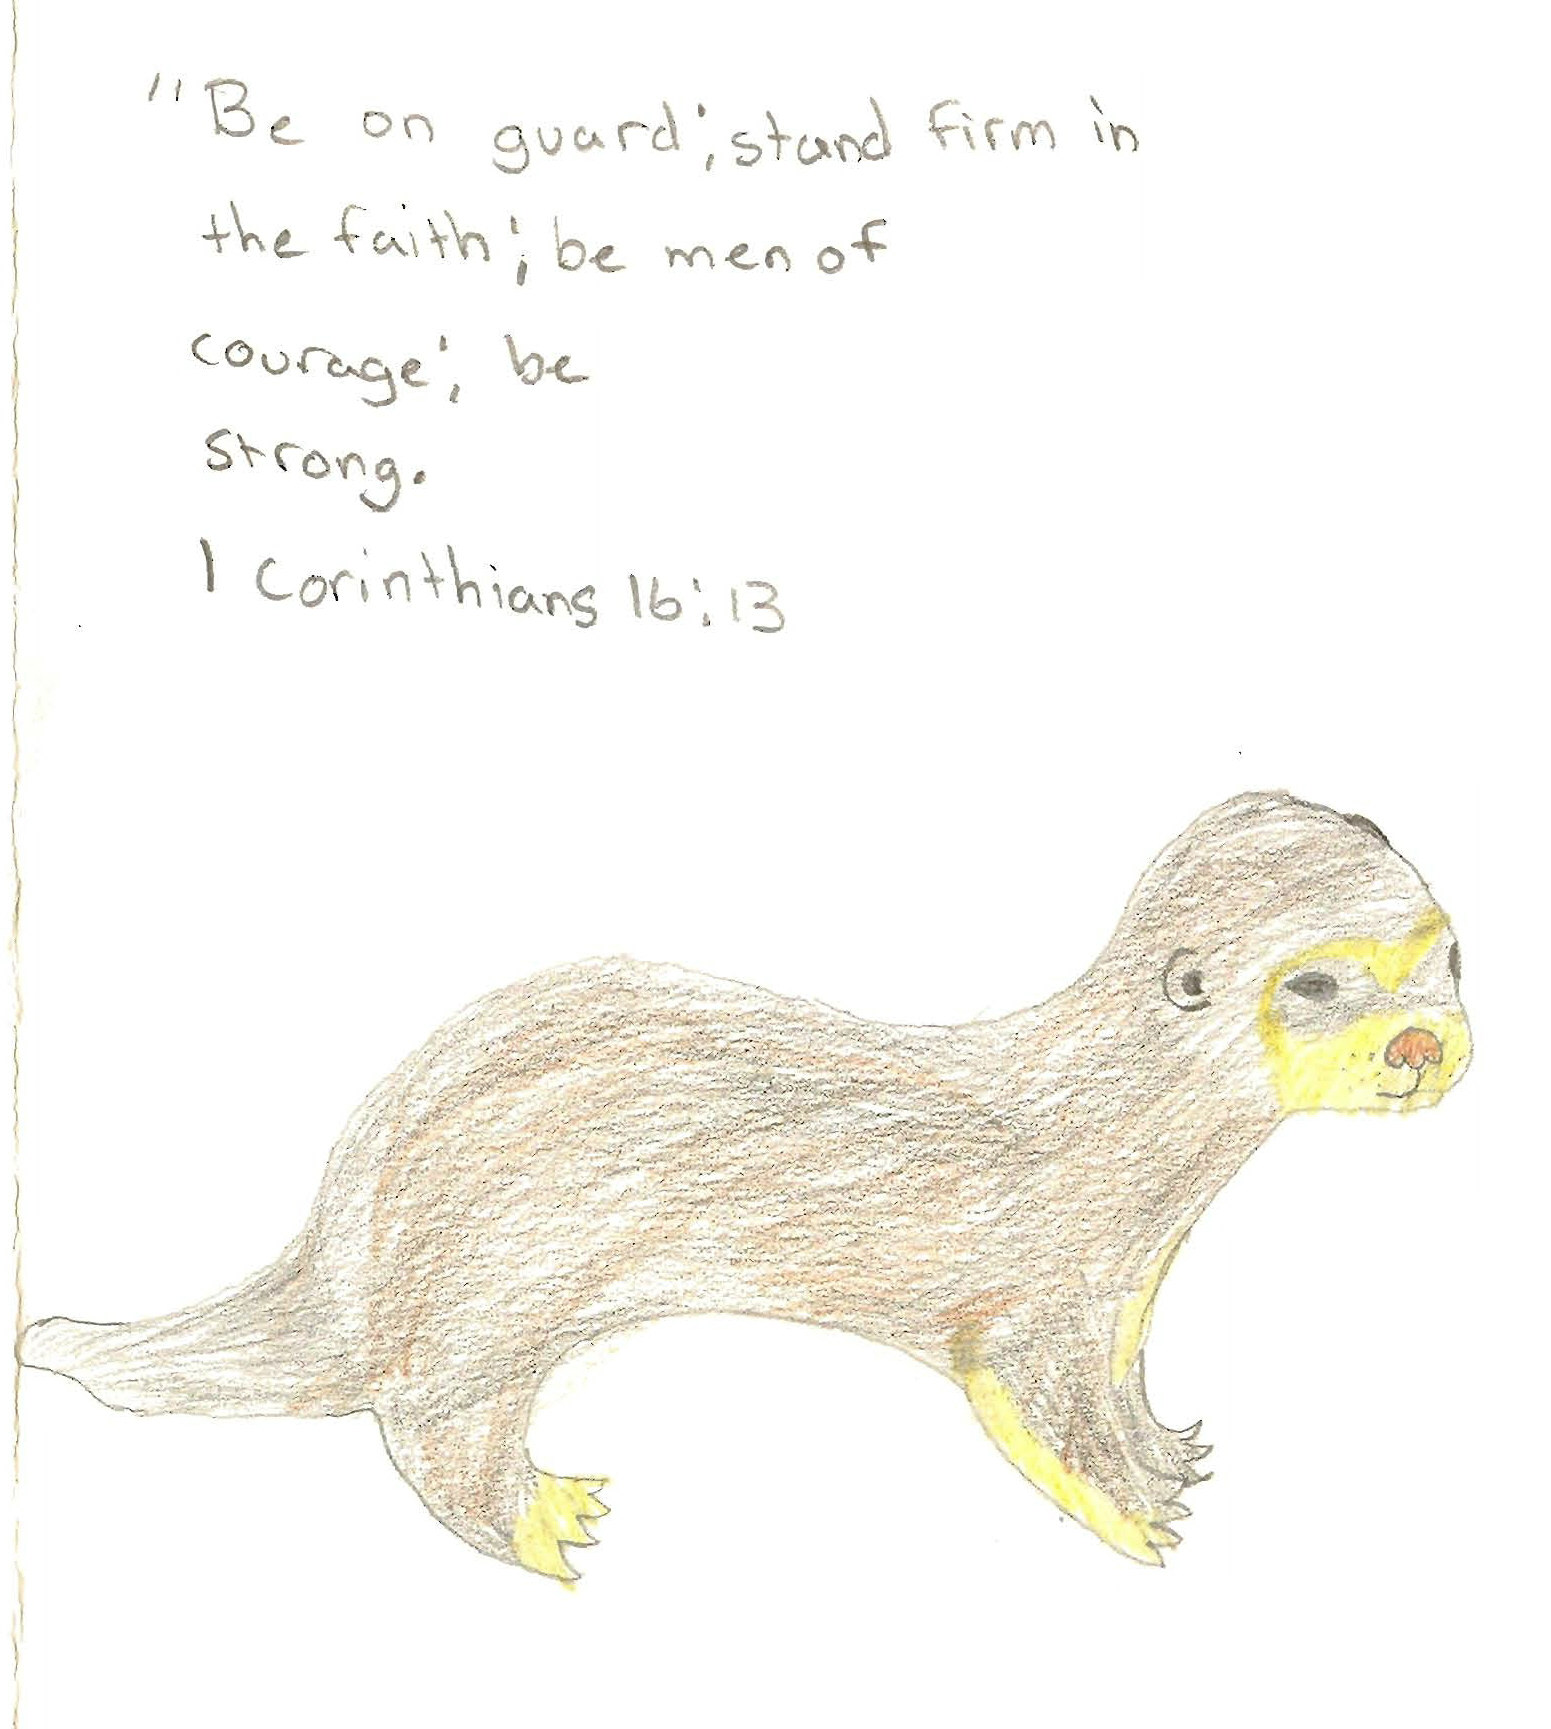 "Be on guard; stand firm in
the faith; be men of
courage; be
strong.
1 Corinthians 16:13